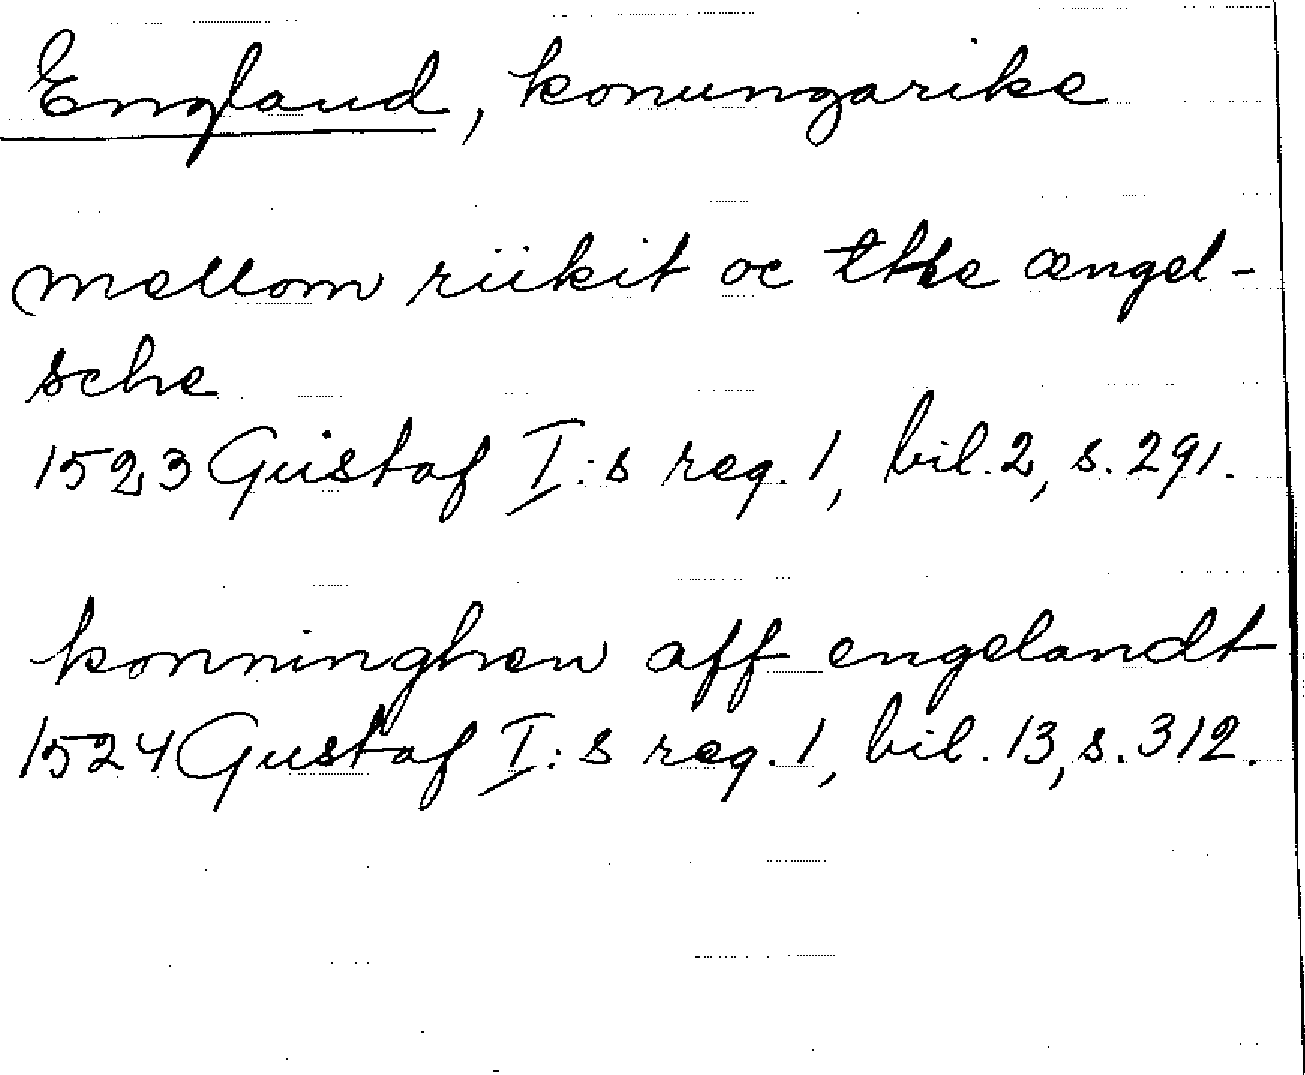 England, konungarike
mellom riikit oc the ængel-
sche
1523 Gustaf I:s reg. 1, bil. 2, s. 291.
konninghen aff engelandt
1524 Gustaf I:s reg. 1, bil. 13, s. 312.